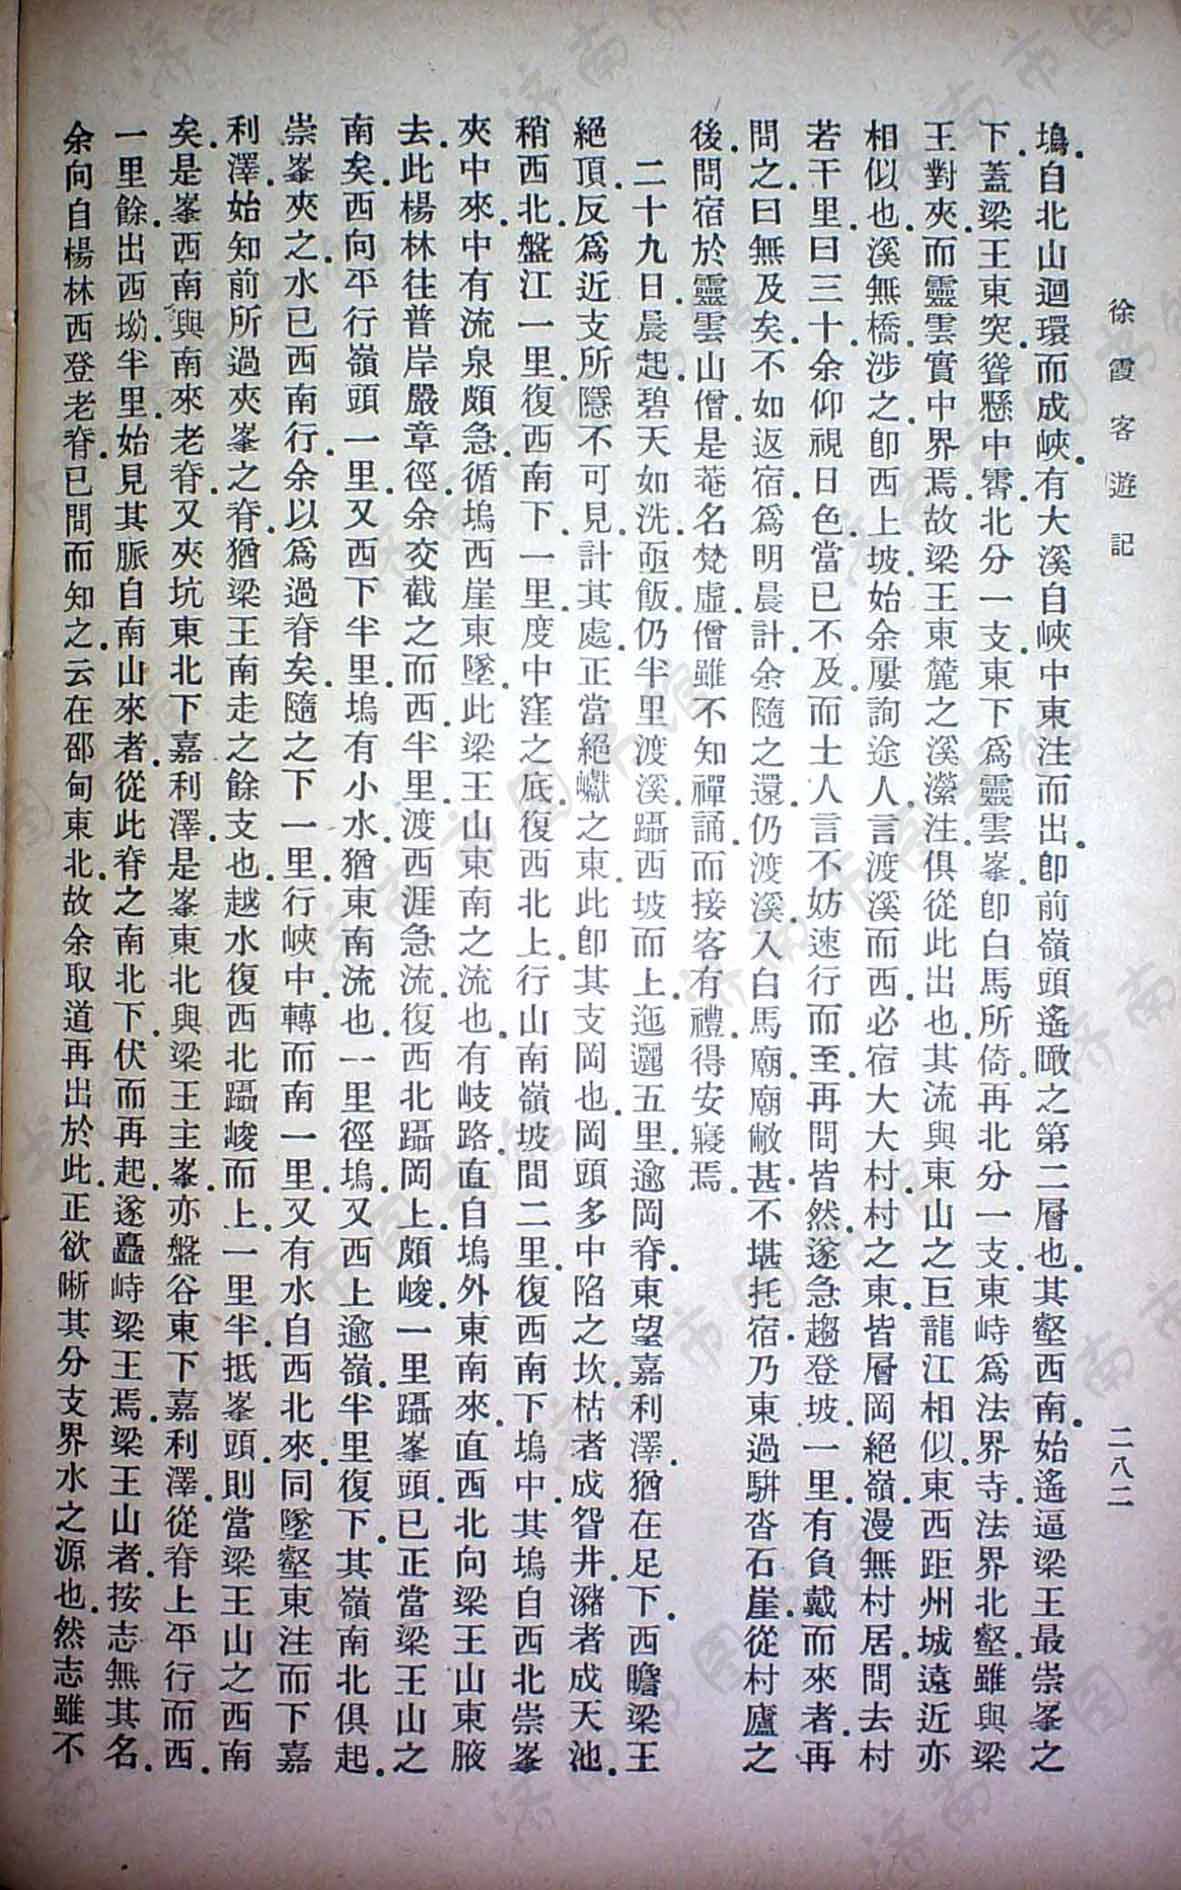 徐霞客遊記
二八二
塢.自北山迴環而成峽.有大溪自峽中東注而出.卽前嶺頭遙瞰之第二層也.其壑西南.始遙逼梁王最崇峯之
下.蓋梁王東突.聳懸中霄.北分一支.東下爲靈雲峯.卽白馬所倚.再北分一支.東峙爲法界寺.法界北壑.雖與梁
王對夾.而靈雲實中界焉.故梁王東麓之溪瀠注.俱從此出也.其流與東山之巨龍江相似.東西距州城遠近亦
相似也.溪無橋.涉之卽西上坡.始余屢詢途人.言渡溪而西.必宿大大村.村之東.皆層岡絕嶺.漫無村居.問去村
若干里.曰三十.余仰視日色.當已不及.而土人言不妨速行而至.再問皆然.遂急趨登坡.一里.有負戴而來者.再
問之.曰無及矣.不如返宿.爲明晨計.余隨之還.仍渡溪.入白馬廟.廟敝甚.不堪托宿.乃東過駢沓石崖.從村廬之
後.問宿於靈雲山僧.是菴名梵虛.僧雖不知禪誦.而接客有禮.得安寢焉.
二十九日.晨起.碧天如洗.亟飯.仍半里渡溪.躡西坡而上.迤邐五里.逾岡脊.東望嘉利澤.猶在足下.西瞻梁王
絕頂.反爲近支所隱.不可見.計其處.正當絕巘之東.此卽其支岡也.岡頭多中陷之坎.枯者成眢井.瀦者成天池.
稍西北.盤江一里.復西南下.一里.度中窪之底.復西北上.行山南嶺坡間二里.復西南下塢中.其塢自西北崇峯
夾中來.中有流泉頗急.循塢西崖東墜.此梁王山東南之流也.有岐路.直自塢外東南來.直西北向梁王山東腋
去.此楊林往普岸嚴章徑.余交截之而西.半里.渡西涯急流.復西北躡岡上.頗峻.一里.躡峯頭.已正當梁王山之
南矣.西向平行嶺頭一里.又西下半里.塢有小水.猶東南流也.一里徑塢.又西上逾嶺.半里復下.其嶺南北俱起
崇峯夾之.水已西南行.余以爲過脊矣.隨之下一里.行峽中.轉而南一里.又有水自西北來.同墜壑東注而下嘉
利澤.始知前所過夾峯之脊.猶梁王南走之餘支也.越水復西北躡峻而上.一里半.抵峯頭.則當梁王山之西南
矣.是峯西南與南來老脊.又夾坑東北下嘉利澤.是峯東北與梁王主峯.亦盤谷東下嘉利澤.從脊上平行而西.
一里餘.出西坳.半里.始見其脈自南山來者.從此脊之南北下.伏而再起.遂矗峙梁王焉.梁王山者.按志無其名.
余向自楊林西登老脊.已問而知之.云在邵甸東北.故余取道再出於此.正欲晰其分支界水之源也.然志雖不